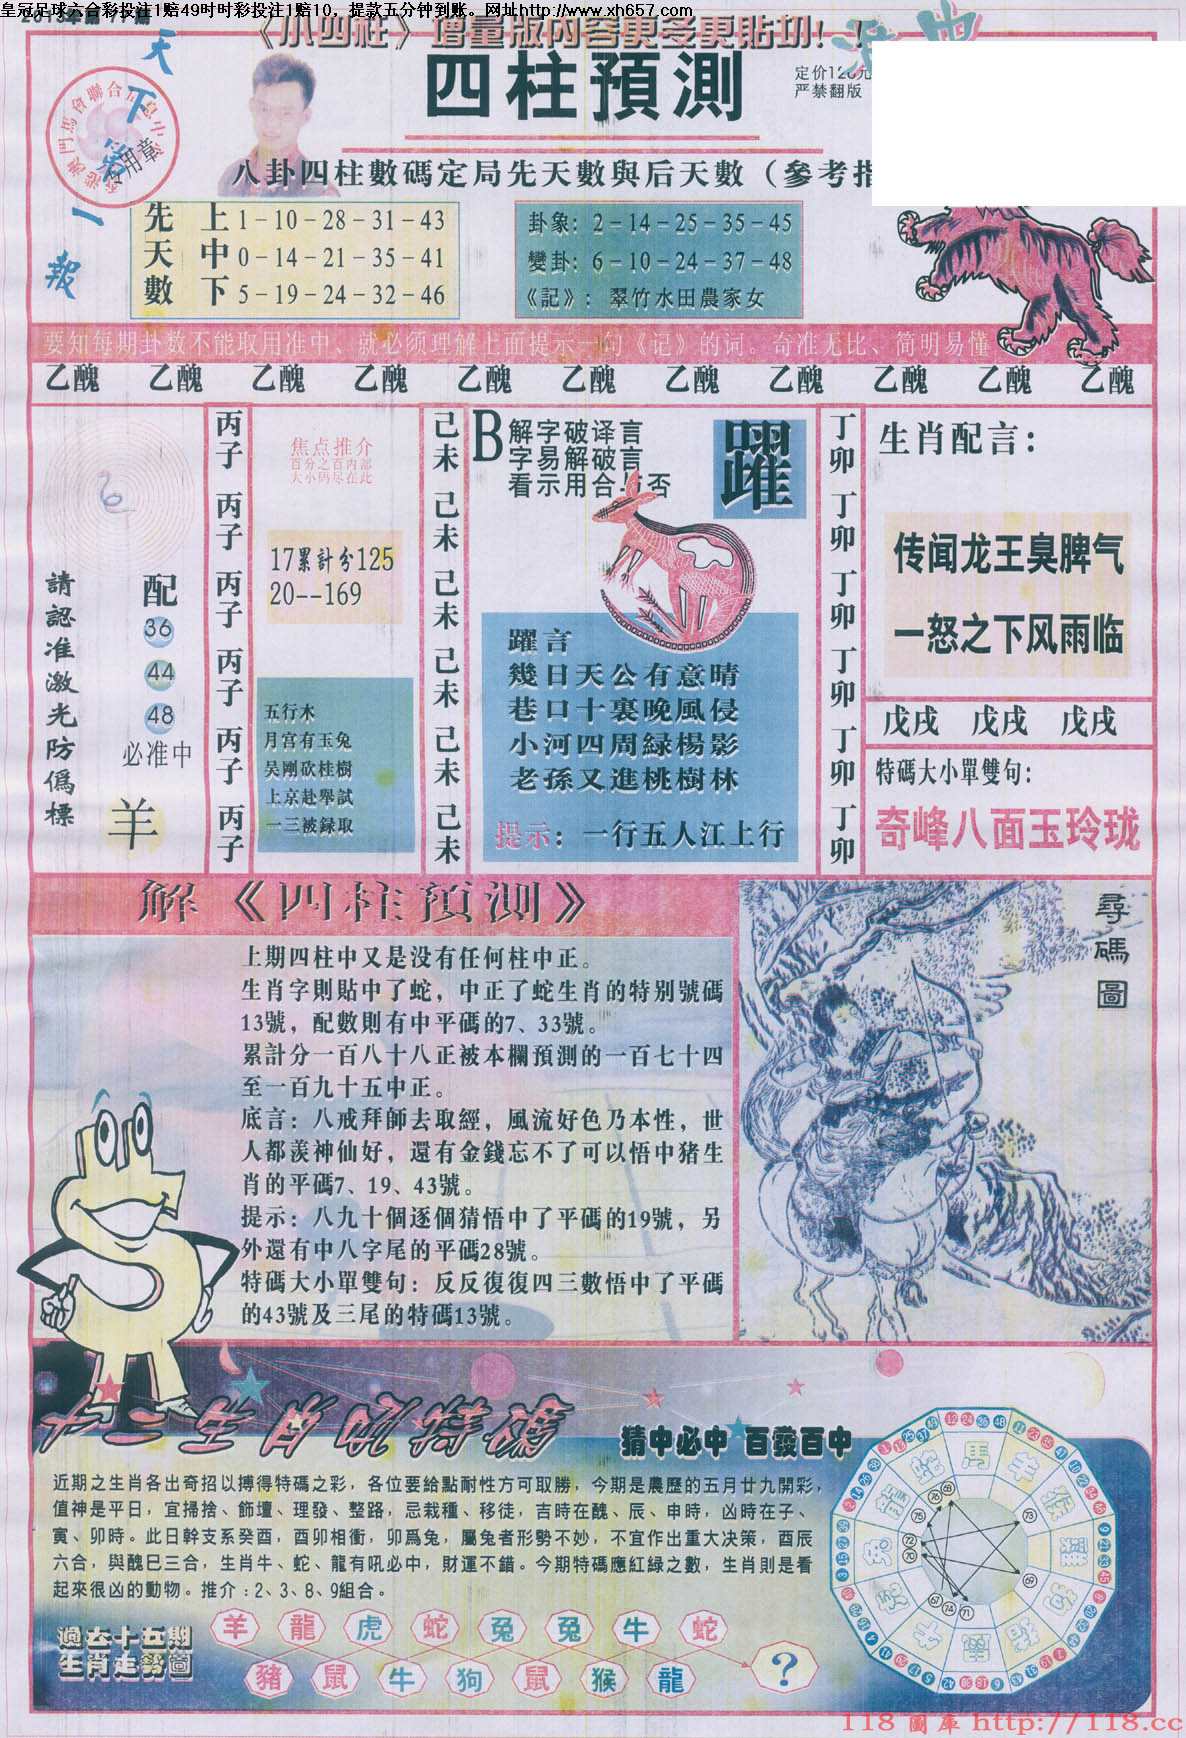 皇冠足球六合彩投注1赔49时时彩投注1赔10，提款五分钟到账。网址http://www.xh657.com
《小四柱》增量版内容更多更貼切！
天下第一報
四柱預測
定价128元
严禁翻版
八卦四柱數碼定局先天數與后天數（參考指
先天數
上 1－10－28－31－43
中 0－14－21－35－41
下 5－19－24－32－46
卦象: 2－14－25－35－45
變卦: 6－10－24－37－48
《記》: 翠竹水田農家女
要知每期卦数不能取用准中，就必须理解上面提示一句《记》的词。奇准无比、简明易懂
乙醜 乙醜 乙醜 乙醜 乙醜 乙醜 乙醜 乙醜 乙醜 乙醜 乙醜
請認准激光防僞標
配
36
44
48
必准中
羊
丙子 丙子 丙子 丙子 丙子 丙子
焦点推介
百分之百内部
大小码尽在此
17累計分125
20--169
五行木
月宫有玉兔
吴剛砍桂樹
上京赴舉試
一三被録取
己未 己未 己未 己未 己未 己未
B
解字破译言
字易解破言
看示用合与否
躍
躍言
幾日天公有意晴
巷口十裏晚風侵
小河四周緑楊影
老孫又進桃樹林
提示: 一行五人江上行
丁卯 丁卯 丁卯 丁卯 丁卯 丁卯
生肖配言:
传闻龙王臭脾气
一怒之下风雨临
戊戌 戊戌 戊戌
特碼大小單雙句:
奇峰八面玉玲珑
解《四柱預測》
上期四柱中又是没有任何柱中正。
生肖字則貼中了蛇，中正了蛇生肖的特别號碼
13號，配數則有中平碼的7、33號。
累計分一百八十八正被本欄預測的一百七十四
至一百九十五中正。
底言: 八戒拜師去取經，風流好色乃本性，世
人都羡神仙好，還有金錢忘不了可以悟中猪生
肖的平碼7、19、43號。
提示: 八九十個逐個猜悟中了平碼的19號，另
外還有中八字尾的平碼28號。
特碼大小單雙句: 反反復復四三數悟中了平碼
的43號及三尾的特碼13號。
尋碼圖
猜中必中 百發百中
近期之生肖各出奇招以搏得特碼之彩，各位要給點耐性方可取勝，今期是農歷的五月廿九開彩，
值神是平日，宜掃捨、飾壇、理發、整路，忌栽種、移徒，吉時在醜、辰、申時，凶時在子、
寅、卯時。此日幹支系癸酉，酉卯相衝，卯爲兔，屬兔者形勢不妙，不宜作出重大决策，酉辰
六合，與醜巳三合，生肖牛、蛇、龍有吼必中，財運不錯。今期特碼應紅緑之數，生肖則是看
起來很凶的動物。推介:2、3、8、9組合。
過去十五期
生肖走勢圖
羊 龍 虎 蛇 兔 兔 牛 蛇
豬 鼠 牛 狗 鼠 猴 龍 ?
118圖庫 http://118.cc